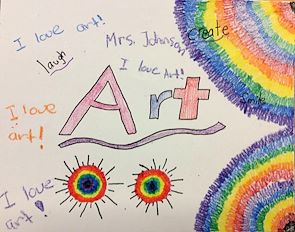 I love art!
Mrs. Johnson
Create
Laugh
I love Art!
Art
I love
art!
Smile
I love
art!